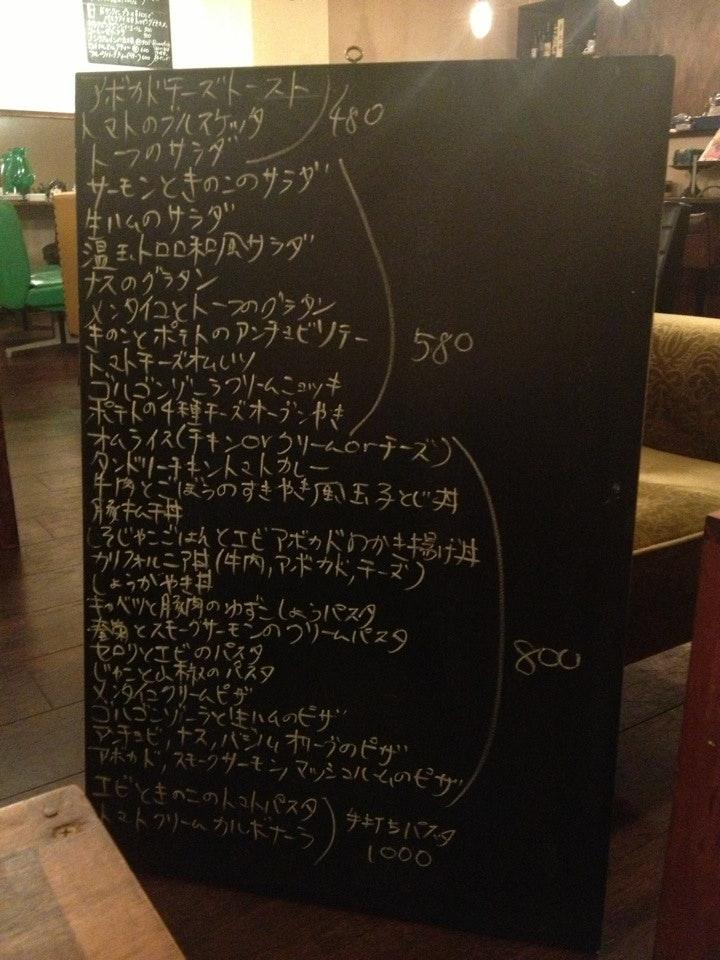 アボカドチーズトースト
トマトのブルスケッタ
トーフのサラダ
480
サーモンときのこのサラダ
生ハムのサラダ
温玉トロロ和風サラダ
ナスのグラタン
メンタイコとトーフのグラタン
きのことポテトのアンチョビソテー
トマトチーズオムレツ
ゴルゴンゾーラクリームニョッキ
ポテトの4種チーズオーブンやき
580
オムライス(チキンorクリームorチーズ)
タンドリーチキントマトカレー
牛肉とごぼうのすきやき風玉子とじ丼
豚キムチ丼
しそじゃこごはんとエビアボカドのかき揚げ丼
カリフォルニア丼(牛肉,アボカド,チーズ)
しょうがやき丼
キャベツと豚肉のゆずこしょうパスタ
とスモークサーモンのクリームパスタ
セロリとエビのパスタ
じゃこと山椒のパスタ
メンタイコクリームピザ
ゴルゴンゾーラと生ハムのピザ
アンチョビ,ナス,バジル,オリーブのピザ
アボカド,スモークサーモン,マッシュルームのピザ
800
エビときのこのトマトパスタ
トマトクリームカルボナーラ
手打ちパスタ
1000